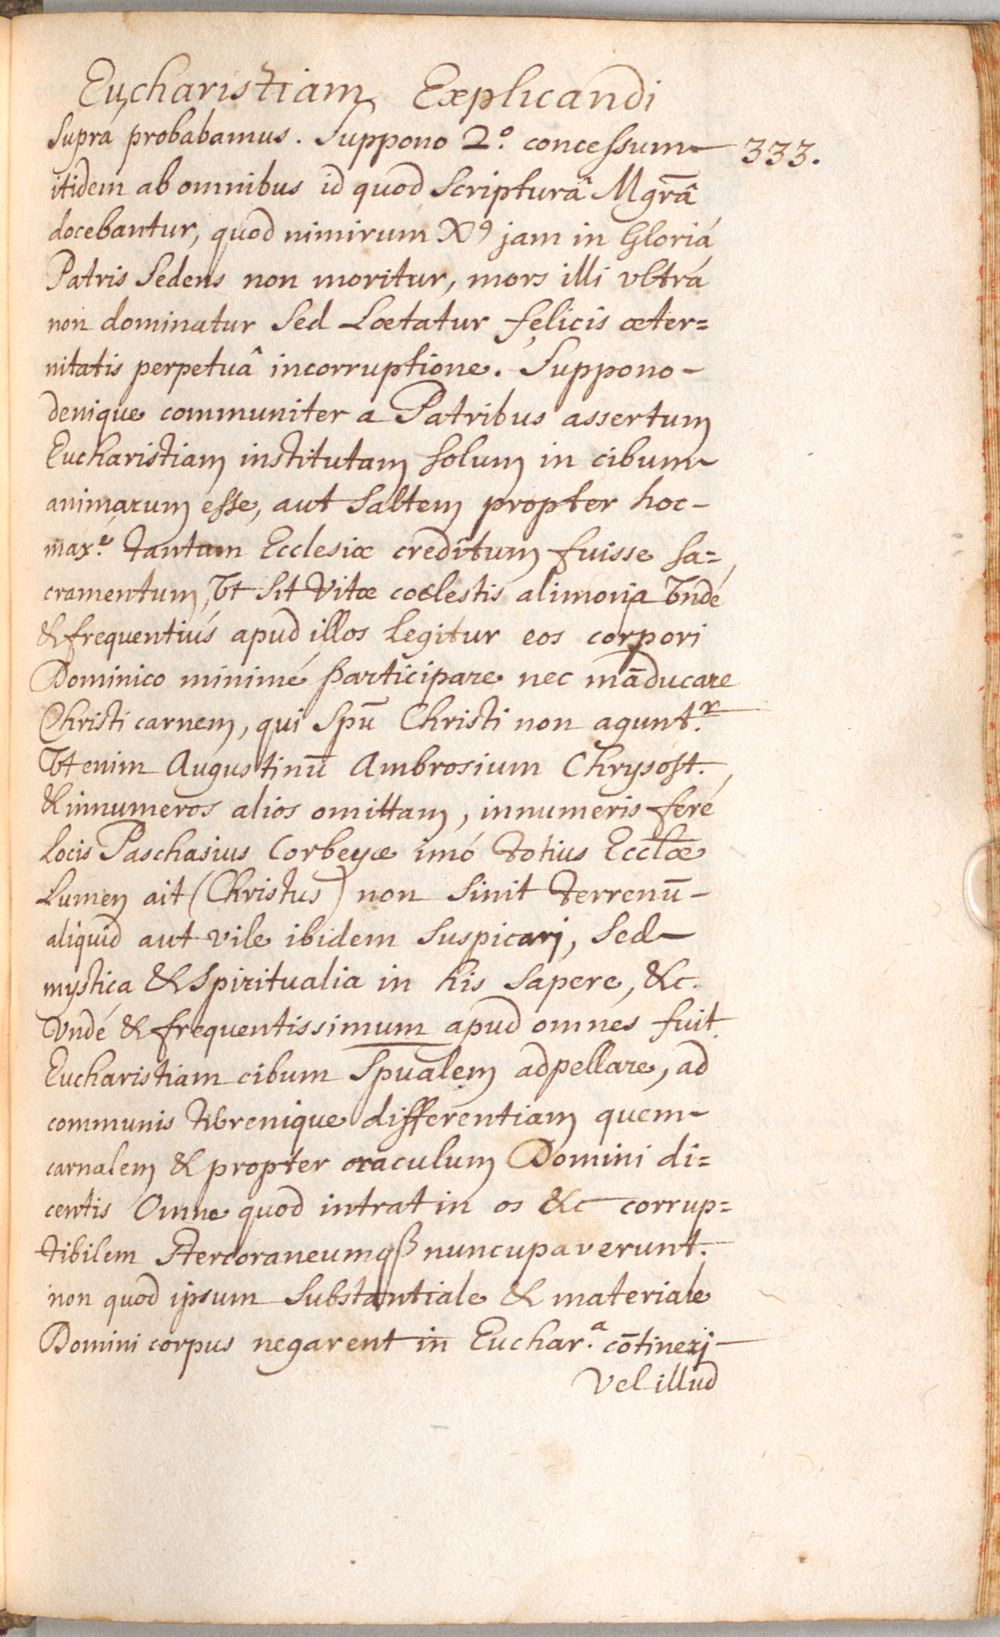 Eucharistiam Explicandi
supra probabamus. Suppono 2.º concessum 333.
itidem ab omnibus id quod Scripturâ Mgr̄â
docebantur, quod nimirum X⁹ jam in Gloriá
Patris Sedens non moritur, mors illi vltrá
non dominatur Sed Lœtatur felicis œter=
nitatis perpetuâ incorruptione. Suppono-
denique communiter a Patribus assertum
Eucharistiam institutam solum in cibum
animarum esse, aut Saltem propter hoc-
max.e tantum Ecclesiæ creditum fuisse Sa=
cramentum, Vt Sit Vitæ coelestis alimonia Vndé
& frequentiús apud illos legitur eos corpori
Dominico minimé participare nec māducare
Christi carnem, qui Spū Christi non agunt.r
Vt enim Augustinū Ambrosium Chrysost.
& innumeros alios omittam, innumeris feré
locis Paschasius Corbeyæ imó totius Eccl̄æ
Lumen ait (Christus) non Sinit terrenū-
aliquid aut vile ibidem suspicari, Sed
mystica & Spiritualia in his Sapere, &c.
Vndé & frequentissimum apud omnes fuit
Eucharistiam cibum Spūalem adpellare, ad
communis terrenique differentiam quem
carnalem & propter oraculum Domini di=
centis Omne quod intrat in os &c corrup=
tibilem Stercoraneumqꝫ nuncupaverunt.
non quod ipsum Substantiale & materiale
Domini corpus negarent in Euchar.a cōtineri
Vel illud